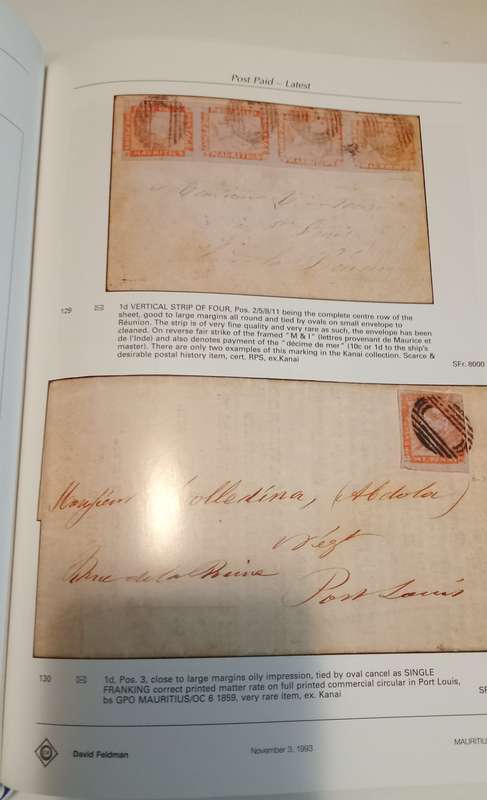 Post Paid – Latest
MAURITIUS
MAURITIUS
MAURITIUS
129
1d VERTICAL STRIP OF FOUR, Pos. 2/5/8/11 being the complete centre row of the
sheet, good to large margins all round and tied by ovals on small envelope to
Réunion. The strip is of very fine quality and very rare as such, the envelope has been
cleaned. On reverse fair strike of the framed "M & I" (lettres provenant de Maurice et
de l'Inde) and also denotes payment of the "décime de mer" (10c or 1d to the ship's
master). There are only two examples of this marking in the Kanai collection. Scarce &
desirable postal history item, cert. RPS, ex.Kanai
SFr. 8000
Monsieur
Rue de la Reine
Port Louis
130
1d, Pos. 3, close to large margins oily impression, tied by oval cancel as SINGLE
FRANKING correct printed matter rate on full printed commercial circular in Port Louis,
bs GPO MAURITIUS/OC 6 1859, very rare item, ex. Kanai
David Feldman
November 3, 1993